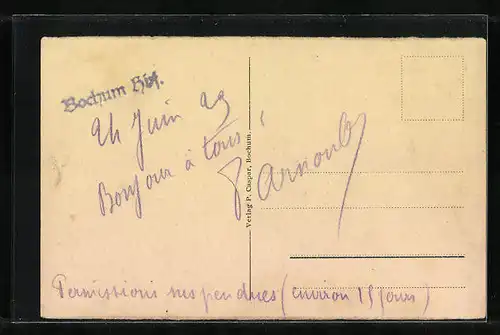 Bochum Hbf.
24 Juin 23
Bonjour à tous !
J Arnould
Verlag P. Caspar, Bochum.
Permissions suspendues (environ 15 jours)